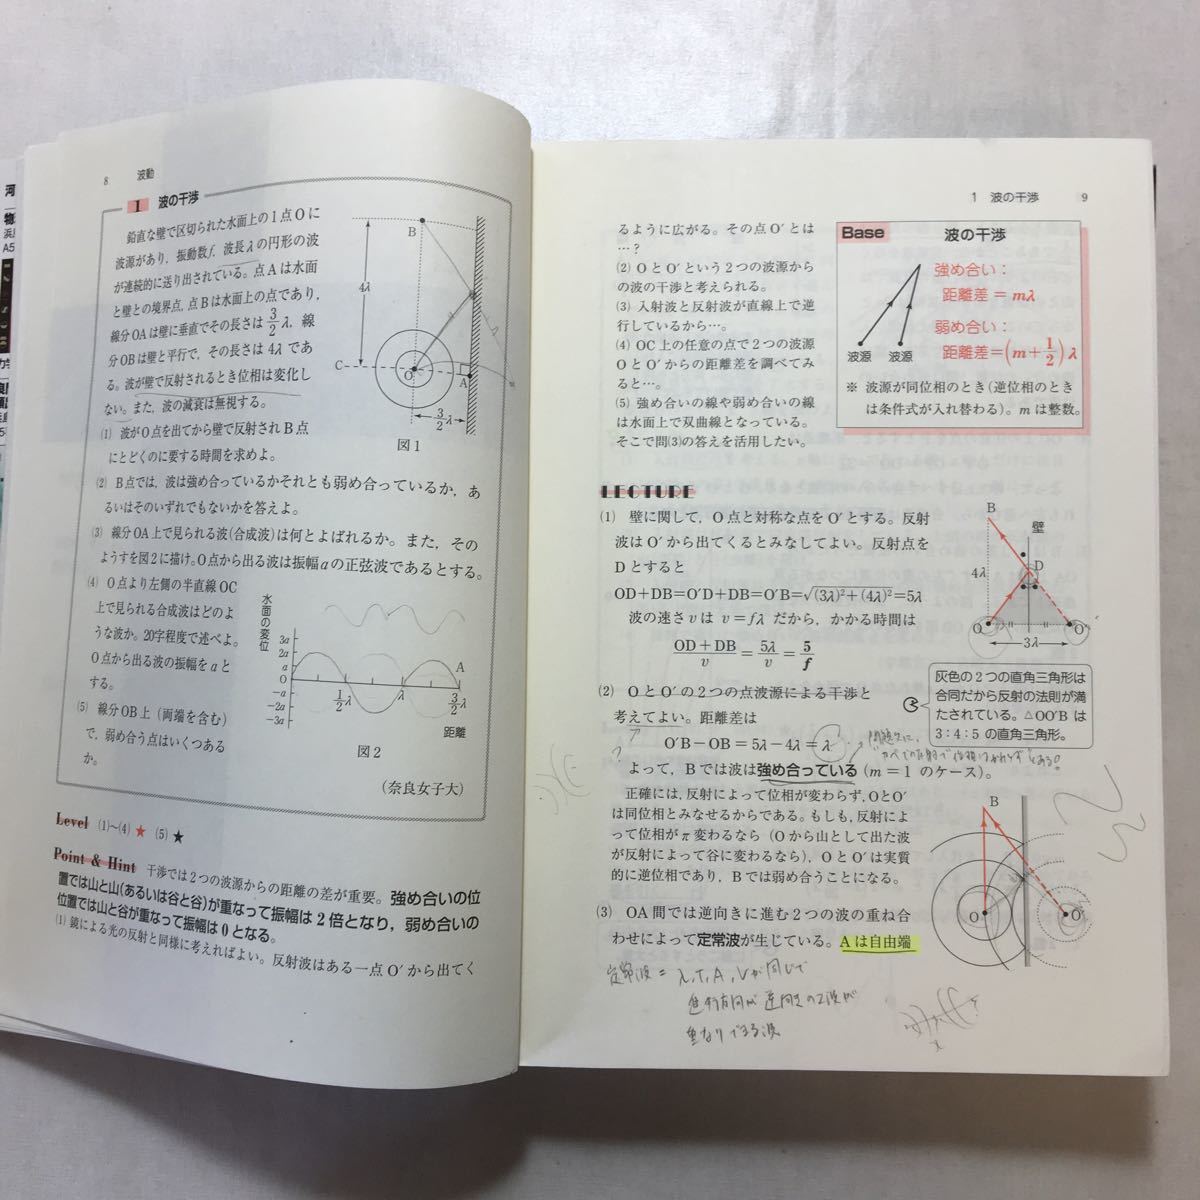 8 波動
1 波の干渉
鉛直な壁で区切られた水面上の1点Oに
波源があり，振動数f，波長λの円形の波
が連続的に送り出されている。点Aは水面
と壁との境界点，点Bは水面上の点であり，
線分OAは壁に垂直でその長さは3/2λ，線
分OBは壁と平行で，その長さは4λであ
る。波が壁で反射されるとき位相は変化し
ない。また，波の減衰は無視する。
(1) 波がO点を出てから壁で反射されB点
にとどくのに要する時間を求めよ。
(2) B点では，波は強め合っているかそれとも弱め合っているか，あ
るいはそのいずれでもないかを答えよ。
(3) 線分OA上で見られる波(合成波)は何とよばれるか。また，その
ようすを図2に描け。O点から出る波は振幅aの正弦波であるとする。
(4) O点より左側の半直線OC
上で見られる合成波はどのよ
うな波か。20字程度で述べよ。
O点から出る波の振幅をaと
する。
(5) 線分OB上（両端を含む）
で，弱め合う点はいくつある
か。
B
4λ
C
O
A
3/2λ
図1
水面の変位
3a
2a
a
O
−a
−2a
−3a
1/2λ
λ
3/2λ
A
距離
図2
（奈良女子大）
Level (1)〜(4) ★ (5) ★
Point & Hint 干渉では2つの波源からの距離の差が重要。強め合いの位
置では山と山(あるいは谷と谷)が重なって振幅は2倍となり，弱め合いの
位置では山と谷が重なって振幅は0となる。
(1) 鏡による光の反射と同様に考えればよい。反射波はある一点O′から出てく
1 波の干渉 9
るように広がる。その点O′とは
…？
(2) OとO′という2つの波源から
の波の干渉と考えられる。
(3) 入射波と反射波が直線上で逆
行しているから…。
(4) OC上の任意の点で2つの波源
OとO′からの距離差を調べてみ
ると…。
(5) 強め合いの線や弱め合いの線
は水面上で双曲線となっている。
そこで問(3)の答えを活用したい。
Base 波の干渉
強め合い：
距離差＝mλ
弱め合い：
距離差＝(m＋1/2)λ
波源 波源
※ 波源が同位相のとき(逆位相のとき
は条件式が入れ替わる)。mは整数。
LECTURE
(1) 壁に関して，O点と対称な点をO′とする。反射
波はO′から出てくるとみなしてよい。反射点を
Dとすると
OD＋DB＝O′D＋DB＝O′B＝√(3λ)²＋(4λ)²＝5λ
波の速さvは v＝fλ だから，かかる時間は
OD＋DB/v＝5λ/v＝5/f
B
壁
4λ
D
O
O′
3λ
灰色の2つの直角三角形は
合同だから反射の法則が満
たされている。△OO′Bは
3：4：5の直角三角形。
(2) OとO′の2つの点波源による干渉と
考えてよい。距離差は
O′B−OB＝5λ−4λ＝λ
よって，Bでは波は強め合っている（m＝1のケース）。
正確には，反射によって位相が変わらず，OとO′
は同位相とみなせるからである。もしも，反射によ
って位相がπ変わるなら（Oから山として出た波
が反射によって谷に変わるなら），OとO′は実質
的に逆位相であり，Bでは弱め合うことになる。
B
O
O′
(3) OA間では逆向きに進む2つの波の重ね合
わせによって定常波が生じている。Aは自由端
定常波＝λ,T,A,Vが同じで
進行方向が逆向きの2波が
重なりできる波